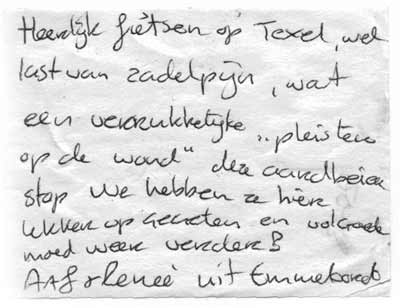 Heerlijk fietsen op Texel, wel
last van zadelpijn, wat
een verrukkelijke „pleisters
op de wond" deze aardbeien
stop We hebben ze hier
lekker opgegeten en volgoede
moed weer verder!
Aaf & Reneé uit Emmeloord